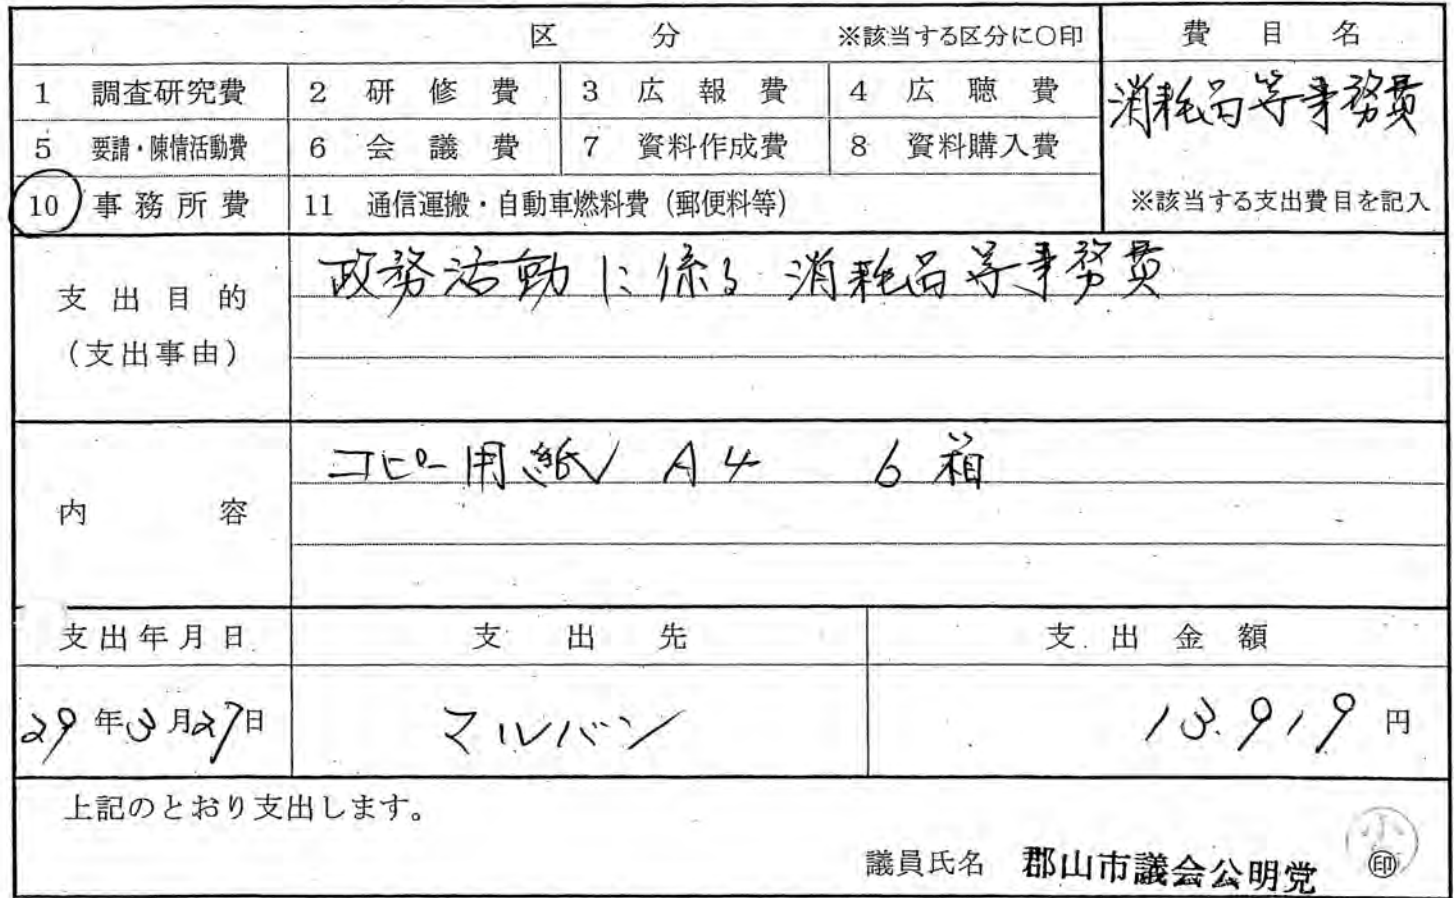 区 分 ※該当する区分に○印 費目名
1 調査研究費 2 研修費 3 広報費 4 広聴費 消耗品等事務費
5 要請・陳情活動費 6 会議費 7 資料作成費 8 資料購入費
10 事務所費 11 通信運搬・自動車燃料費（郵便料等） ※該当する支出費目を記入
支出目的 政務活動に係る消耗品等事務費
（支出事由）
コピー用紙 A4 6箱
内容
支出年月日 支出先 支出金額
29年3月27日 マルバン 13.919円
上記のとおり支出します。
議員氏名 郡山市議会公明党 ㊞